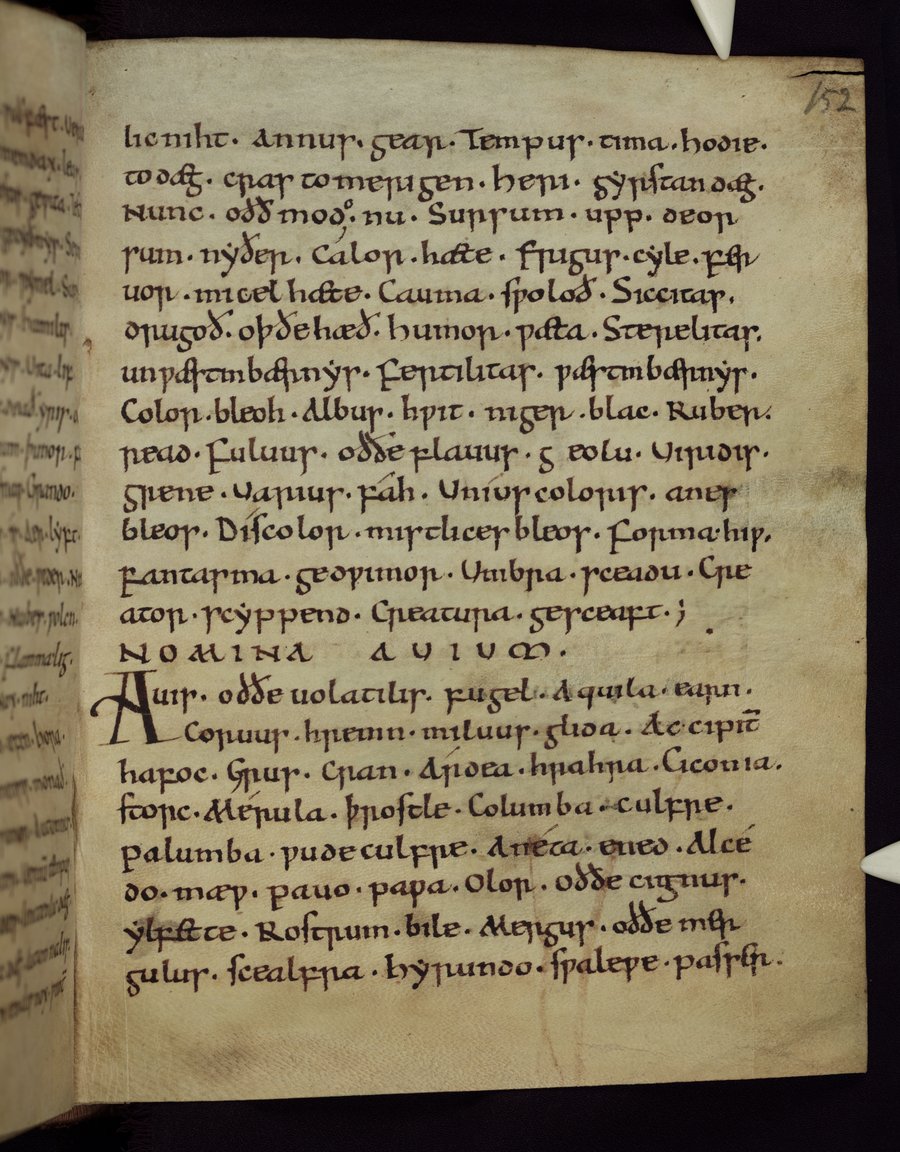 152
lic niht. Annus. gear. Tempus. tima. hodie.
to dæg. cras to merigen. heri. gyrstan dæg.
Nunc. oððe modo. nu. Sursum. upp. deor
sum. nyðer. Cálor. hæte. Frigus. cyle. Fer
uor. micel hæte. Cauma. swoloð. Siccitas.
drugoð. oþðe hæð. humor. wæta. Sterelitas.
unwæstmbærnys. Fertilitas. wæstmbærnys.
Color. bleoh. Albus. hwit. niger. blac. Ruber.
read. Fuluus. oððe flauus. g eolu. Uiridis.
grene. Uarius. fáh. Uníus coloris. anes
bleos. Díscolor. mistlices bleos. Forma. hiw.
Fantasma. gedwimor. Umbra. sceadu. Cre
ator. scyppend. Creatura. gesceaft. ;
NOMINA AUIUM.
Auis. oððe uolatilis. Fugel. Aquila. earn.
Coruus. hremn. miluus. glida. Accipit̄
hafoc. Grus. cran. Árdea. hrahra. Ciconia.
storc. Mérula. þrostle. Columba. culfre.
Palumba. wudeculfre. Anéta. ened. Alcé
do. mæw. pauo. pawa. Olor. Oððe cignus.
ylfette. Rostrum. bile. Mergus. oððe mer
gulus. scealfra. Hyrundo. swalewe. passer.